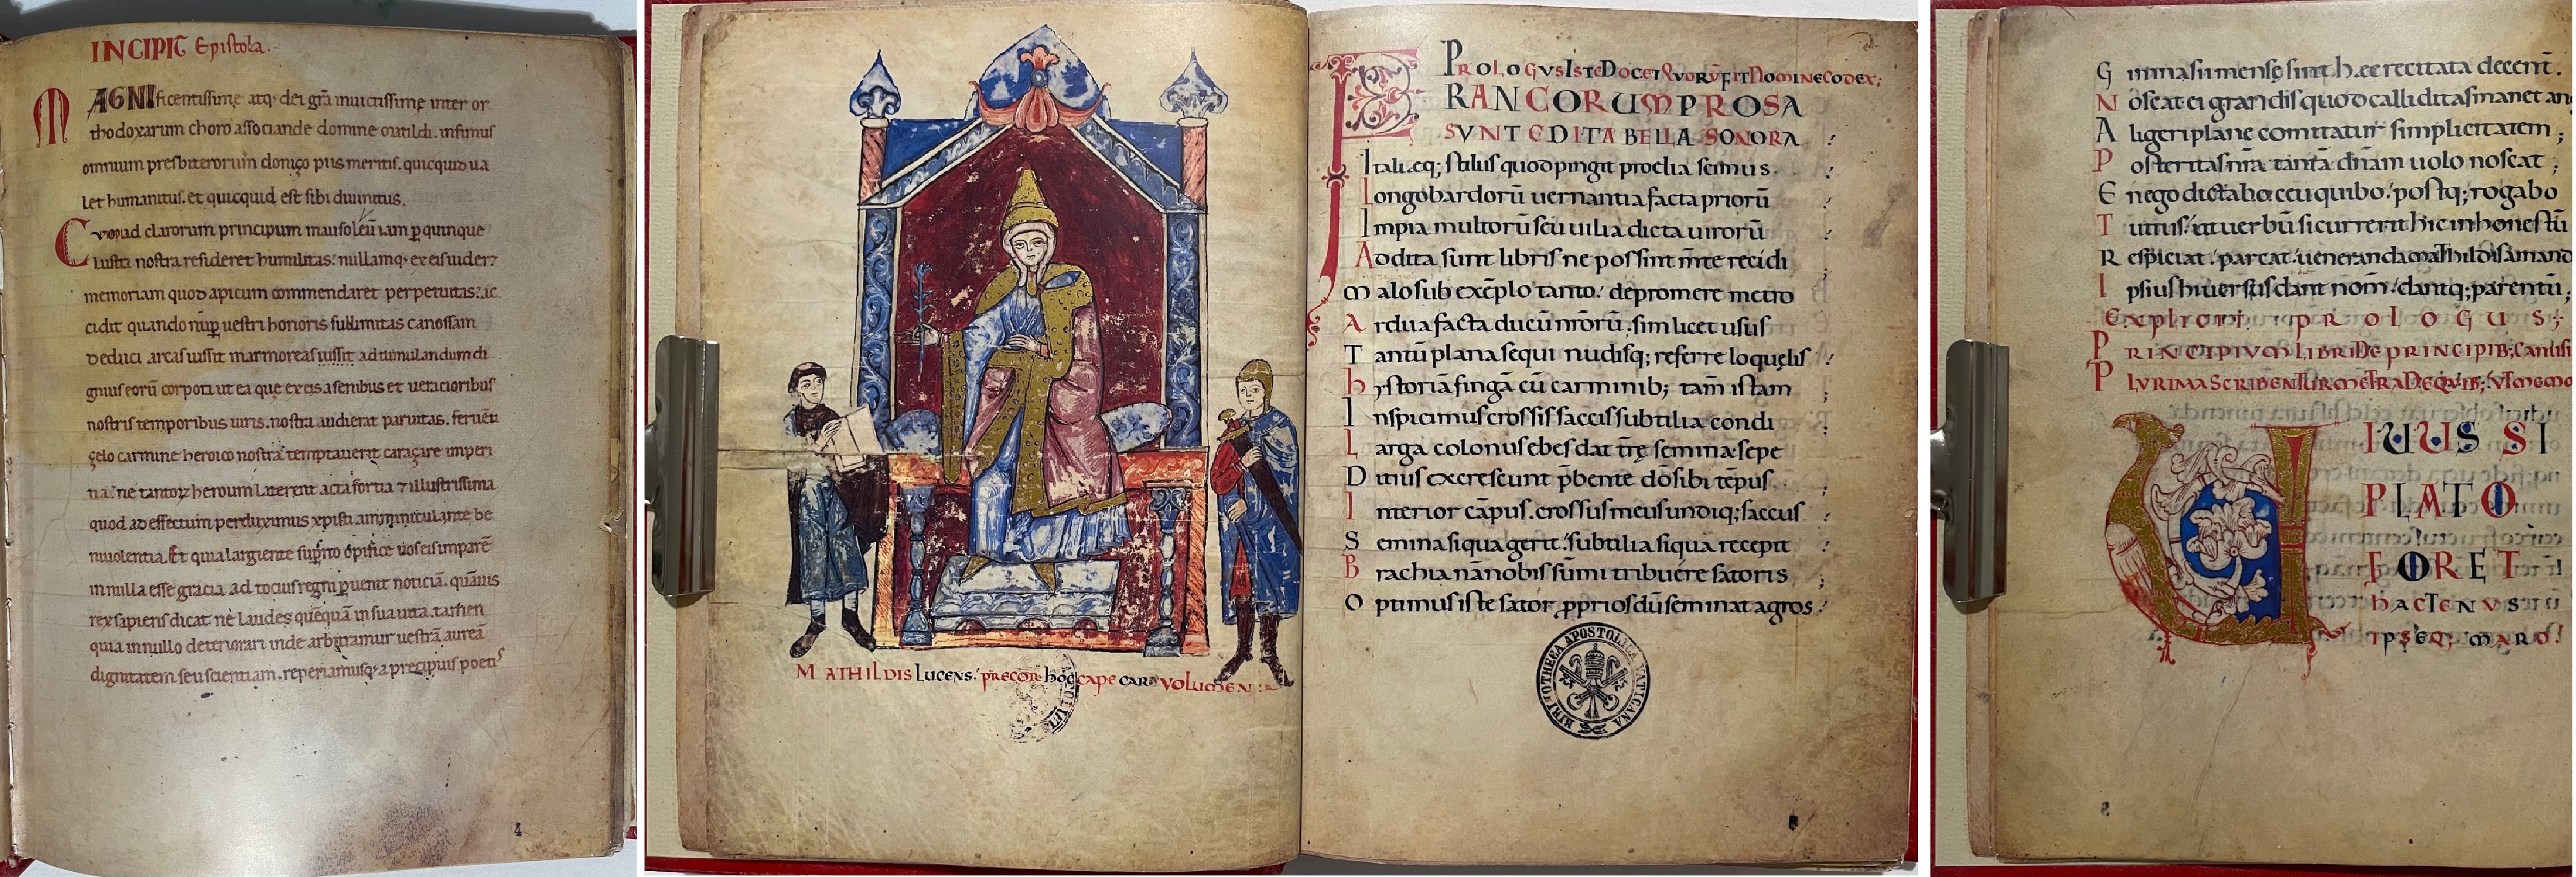 INCIPIT Epistola.
MAGNIficentissimę atq; dei gr̄a inuictissimę inter or
thodoxarum choro associande domine matildi. infimus
omnium presbiterorum donizo piis meritis. quicquid ua
let humanitus. et quicquid est sibi diuinitus.
Cum ad clarorum principum mausoleū iam p quinque
lustra nostra resideret humilitas: nullamq; ex eis uideret
memoriam quod apicum commendaret perpetuitas: ac
cidit quando nup uestri honoris sublimitas canossam
deduci arcas iussit marmoreas iussit ad tumulandum di
gnius eorū corpora ut ea que ex eis a senibus et ueracioribus
nostris temporibus uiris. nostra audierat paruitas. feruēti
zelo carmine heroico nostra temptauerit caraxare imperi
tia: ne tantorum heroum laterent acta fortia et illustrissima
quod ad effectum perduximus xpisti amminiculante be
niuolentia. Et quia largiente sup̄no opifice uos eis imparē
in nulla esse gracia ad tocius regni puenit noticiā. quāuis
rex sapiens dicat nē laudes quēquā in sua uita. tamen
quia in nullo deteriorari inde arbitramur uestrā aureā
dignitatem seu scientiam. reperiamusq; a precipuis poetis
4
MATHILDIS LUCENS: precor hoc cape cara VOLUMEN:
PROLOGUS ISTE DOCET QUORŪ FIT NOMINE CODEX;
FRANCORUM PROSA
SUNT EDITA BELLA SONORA
Italicq; stilus quod pingit proelia scimus.
Longobardorū uernantia facta priorū
Impia multorū seu uilia dicta uirorū
Addita sunt libris ne possint m̄te recidi
Malo sub exēplo tanto: depromere metro
Ardua facta ducū nr̄orū. sim licet usus
Tantū plana sequi nudisq; referre loquelis
hystoriā fingā cū carminib; tam̄ istam
Inspicimus crossis saccis subtilia condi
Larga colonus ebes dat tr̄ę semina sepe
Ditius excrescunt p̄bente dō sibi tēpus
Interior cāpus. crossus meus undiq; saccus
Semina siqua gerit. subtilia siqua recepit
Brachia nā nobis sūmi tribuere satoris
Optimus iste sator pprios dū seminat agros
BIBLIOTHECA APOSTOLICA VATICANA
Gimnasii mensę sint hęc recitata decent.
Noscat ei grandis quod calliditas manet an
Aligeri plane comitatur simplicitatem;
Posteritas nr̄a tantā dn̄am uolo noscat;
Enego dictabo ceu quibo: postq; rogabo
Tuitius: ut uerbū si currerit hic inhonestū
Respiciat. parcat. ueneranda mathildis amand
Ipsius hi uersus dant nom̄: dantq; parentū;
Explicit prologus;
PRINCIPIUM LIBRI DE PRINCIPIB; CANUSI
PLURIMA SCRIBENTUR METRA DE QUIB; UT MEMO
VIUUS SI
PLATO
FORET
HACTENUS
IPSEQ; MARO!